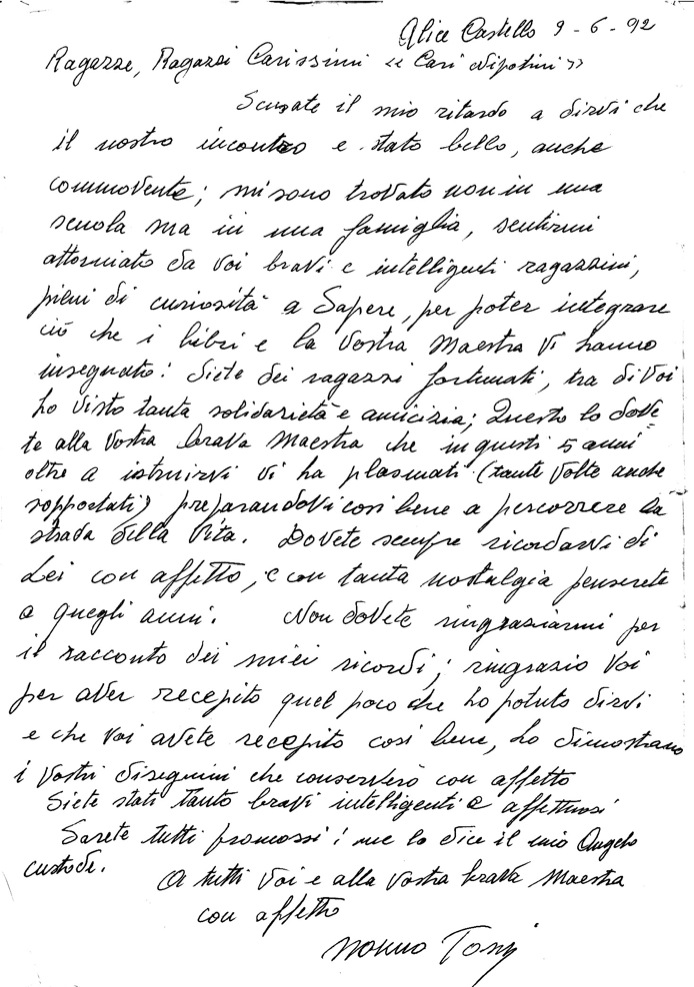 Alice Castello 9-6-92
Ragazze, Ragazzi Carissimi « Cari Nipotini »
Scusate il mio ritardo a dirvi che
il nostro incontro e stato bello, anche
commovente; mi sono trovato non in una
scuola ma in una famiglia, sentirmi
attorniato da voi bravi e intelligenti ragazzini,
pieni di curiosità a Sapere, per poter integrare
ciò che i libri e la Vostra Maestra Vi hanno
insegnato: Siete dei ragazzi fortunati, tra di Voi
ho visto tanta solidarietà e amicizia; Questo lo dove-
te alla Vostra brava Maestra che in questi 5 anni
oltre a istruirvi vi ha plasmati (tante Volte anche
sopportati) preparandovi così bene a percorrere la
strada della Vita. Dovete sempre ricordarvi di
Lei con affetto, e con tanta nostalgia penserete
a quegli anni. Non dovete ringraziarmi per
il racconto dei miei ricordi; ringrazio Voi
per aver recepito quel poco che ho potuto dirvi
e che Voi avete recepito così bene, Lo dimostrano
i Vostri disegnini che conserverò con affetto
Siete stati Tanto bravi intelligenti e affettuosi
Sarete tutti promossi! me lo dice il mio Angelo
custode.
A tutti Voi e alla Vostra brava Maestra
con affetto
nonno Tony